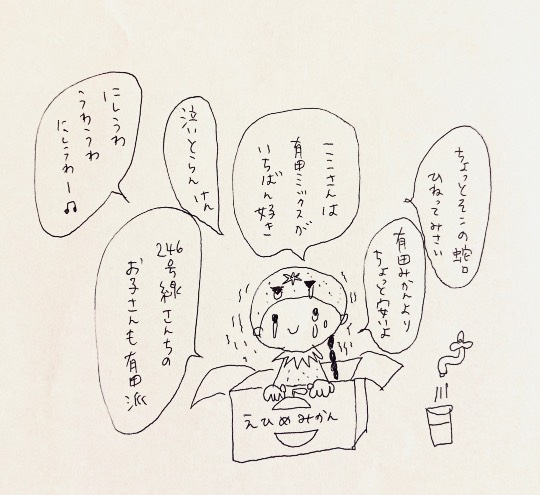 ちょっとそこの蛇口
ひねってみさい
有田みかんより
ちょっと安いよ
ここさんは
有田ミックスが
いちばん好き
泣いとらん けん
にしうわ
うわうわ
にしうわー♫
246号線さんちの
お子さんも有田
派
えひめみかん